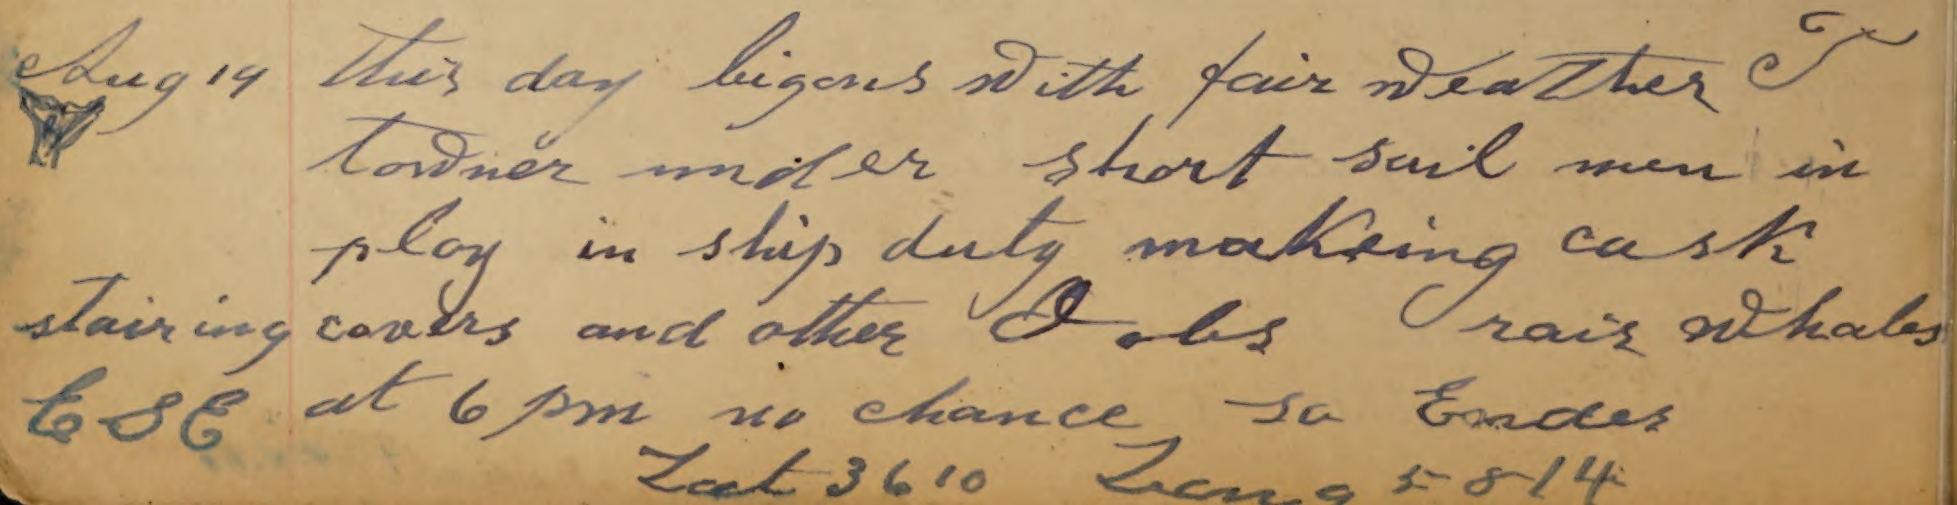 Aug 19 this day bigons with fair weather I
towner under short sail men in
ploy in ship duty makeing cask
stairing covers and other Jobs rais whales
ESE at 6 pm no chance so Endes
Lat 36 10 Long 58 14